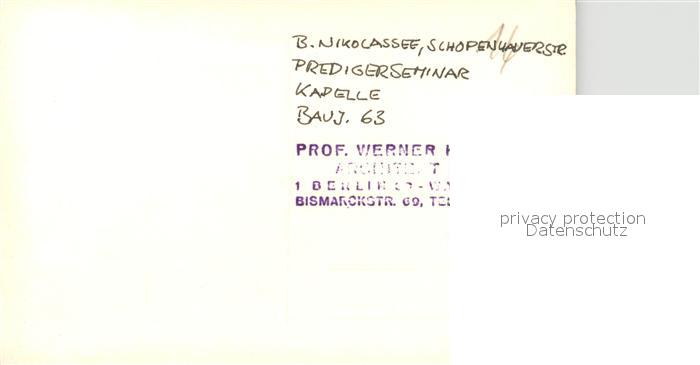 B. NIKOLASSEE, SCHOPENHAUERSTR
PREDIGERSEMINAR
KAPELLE
BAUJ. 63
PROF. WERNER
ARCHITEKT
1 BERLIN
BISMARCKSTR. 69, TEL
privacy protection
Datenschutz